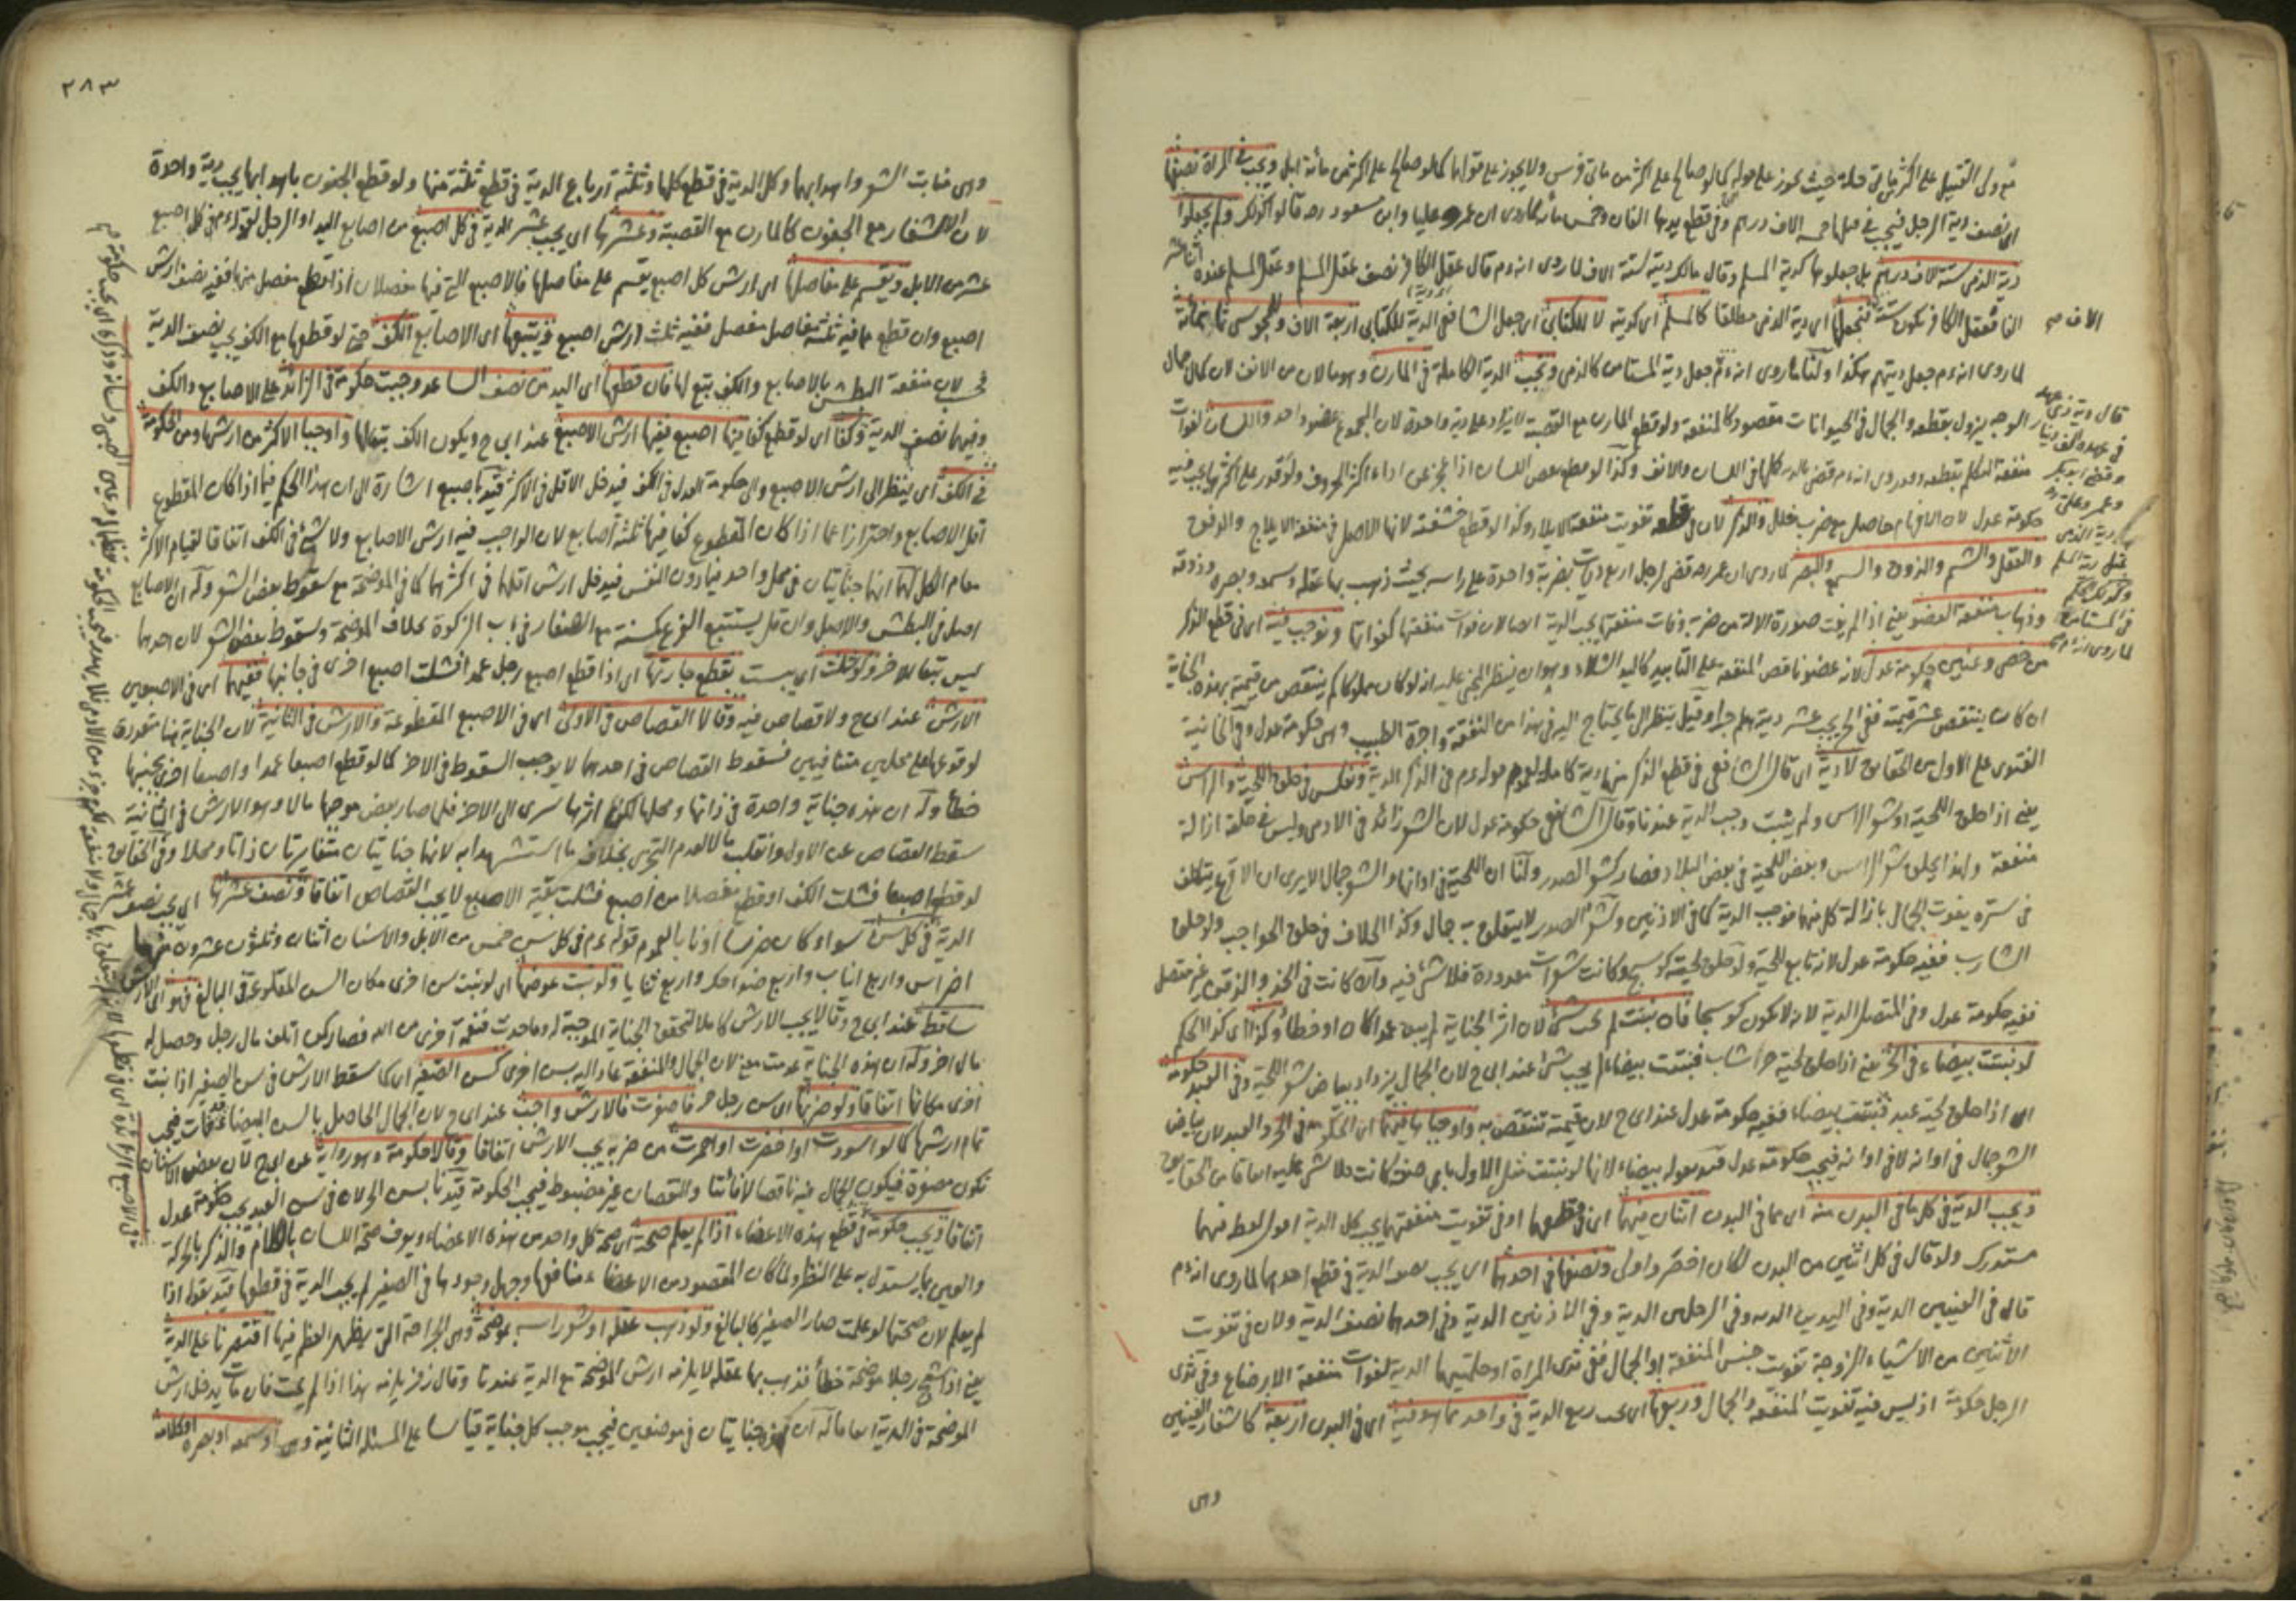 مع ولى القتيل على اكثر من مائتى حلة حيث يجوز على قوله كما لو صالح على اكثر من مائتى فرس ولا يجوز على قولهما كما لو صالح على اكثر من مائة ابل ويجب فى المرأة نصفها
اى نصف دية الرجل فيجب فى قتلها خمسة الاف درهم وفى قطع يدها الفان وخمس مائة لما روى ان عمر وعليا وابن مسعود رضه قالوا كذلك ولم يجعلوا
دية الذمى ستة الاف درهم بل جعلوها كدية المسلم وقال مالك ديته ستة الاف لما روى انه م قال عقل الكافر نصف عقل المسلم وعقل المسلم عنده اثنا عشر
الفا فعقل الكافر يكون ستة فنجعلها اى دية الذمى مطلقا كالمسلم اى كديته لا للكتابى اى جعل الشافعى الدية للكتابى اربعة الاف وللمجوسى ثمانمائة
الاف م
لما روى انه م جعل ديتهم هكذا ولنا ما روى انه م جعل دية المستامن كالذمى ويجب الدية الكاملة فى المارن وهو مالان من الانف لان كمال جمال
الوجه يزول بقطعه والجمال فى الحيوانات مقصود كالمنفعة ولو قطع المارن مع القصبة لا يزاد على دية واحدة لان المجموع عضو واحد واللسان لفوات
منفعة التكلم بقطعه وقد روى انه م قضى بالدية كلها فى اللسان والانف وكذا لو قطع بعض اللسان اذا عجز عن اداء اكثر الحروف ولو قدر على اكثرها يجب فيه
حكومة عدل لان الافهام حاصل مع ضرب خلل والذكر لان فى قطعه تفويت منفعة الايلاد وكذا لو قطع حشفته لانها الاصل فى منفعة الايلاج والدفق
والعقل والشم والذوق والسمع والبصر لما روى ان عمر رضه قضى لرجل اربع ديات بضربة واحدة على راسه بحيث ذهب بها عقله وسمعه وبصره وذوقه
وذهاب منفعة العضو يعنى اذا لم يفت صورة الالة من ضربه وفات منفعتها يجب الدية ايضا لان فوات منفعتها كفواتها ونوجب فيه اى فى قطع الذكر
من خصى وعنين حكومة عدل لانه عضو ناقص المنفعة على التأبيد كاليد الشلاء وهو ان ينظر المجنى عليه انه لو كان مملوكا كم ينتقص من قيمته بهذه الجناية
ان كان ينتقص عشر قيمته ففى الحر يجب عشر ديته هلم جرا وقيل ينظر الى ما يحتاج اليه فى هذا من النفقة واجرة الطبيب وهى حكومة عدل وفى الخانية
الفتوى على الاول من الحقائق لا دية اى قال الشافعى فى قطع الذكر منهما دية كاملة لعموم قوله م فى الذكر الدية ونعكس فى حلق اللحية والراس
يعنى اذا حلق اللحية او شعر الراس ولم ينبت وجب الدية عندنا وقال الشافعى حكومة عدل لان الشعر زائد فى الادمى وليس فى حلقه ازالة
منفعة ولهذا يحلق شعر الراس وبعض اللحية فى بعض البلاد فصار كشعر الصدر ولنا ان اللحية فى اوانها والشعر جمال الا يرى ان الاقرع يتكلف
فى ستره بفوت الجمال بازالة كل منهما فوجب الدية كما فى الاذنين وشعر الصدر لا يتعلق به جمال وكذا الخلاف فى حلق الحواجب ولو حلق
الشارب ففيه حكومة عدل لانه تابع للحية ولو حلق لحية كوسج وكانت شعرات معدودة فلا شئ فيه وان كانت فى الخد والذقن غير متصل
ففيه حكومة عدل وفى المتصل الدية لانه لا يكون كوسجا فان نبتت لم يجب شئ لان اثر الجناية لم يبق عمدا كان او خطأ وكذا اى كذا الحكم
لو نبتت بيضاء فى الحر يعنى اذا حلق لحية حر شاب فنبتت بيضاء لم يجب شئ عند ابى ح لان الجمال يزداد ببياض شعر اللحية وفى العبد حكومة
اى اذا حلق لحية عبد فنبتت بيضاء ففيه حكومة عدل عند ابى ح لان قيمته تنتقص به واوجباها فيهما اى الحكومة فى الحر والعبد لان بياض
الشعر جمال فى اوانه لا فى غير اوانه فيجب حكومة عدل قيد بقوله بيضاء لانها لو نبتت مثل الاول باى صفة كانت فلا شئ عليه اتفاقا من الحقايق
ويجب الدية فى كل ما فى البدن منه اى مما فى البدن اثنان منهما اى فى قطعهما او فى تفويت منفعتهما يجب كل الدية اقول لفظ منهما
مستدرك ولو قال فى كل اثنين من البدن لكان اخصر واولى ونصفها فى احدهما اى يجب نصف الدية فى قطع احدهما لما روى انه م
قال فى العينين الدية وفى اليدين الدية وفى الرجلين الدية وفى الاذنين الدية وفى احدهما نصف الدية ولان فى تفويت
الاثنين من الاشياء المزدوجة تفويت جنس المنفعة او الجمال ففى ثدى المرأة او حلمتيهما الدية لفوات منفعة الارضاع وفى ثدى
الرجل حكومة اذ ليس فيه تفويت المنفعة والجمال وربعها اى يجب ربع الدية فى واحد مما هو فيه اى فى البدن اربعة كاشفار العينين
وهى
قال دية ذى عهد
فى عهده الف دينار
وقضى ابو بكر
وعمر وعلى رضه
دية الذمى
مثل دية المسلم
وكذلك الحكم
فى المستامن
لما روى انه م
٢٨٣
وهى منابت الشعر واهدابها وكل الدية فى قطع كلها وثلثة ارباع الدية فى قطع ثلثة منها ولو قطع الجفون باهدابها يجب دية واحدة
لان الاشفار مع الجفون كالمارن مع القصبة وعشرها اى يجب عشر الدية فى كل اصبع من اصابع اليد او الرجل لقوله م فى كل اصبع
عشر من الابل ويقسم على مفاصلها اى ارش كل اصبع يقسم على مفاصلها فالاصبع التى فيها مفصلان اذا قطع مفصل منها ففيه نصف ارش
اصبع وان قطع مما فيه ثلثة مفاصل مفصل ففيه ثلث ارش اصبع ويتبعها اى الاصابع الكف حتى لو قطعها مع الكف يجب نصف الدية
فحسب لان منفعة البطش بالاصابع والكف تبع لها فان قطعها اى اليد من نصف الساعد وجبت حكومة فى الزائد على الاصابع والكف
وفيهما نصف الدية وكفا اى لو قطع كفا فيها اصبع ففيها ارش الاصبع عند ابى ح ويكون الكف تبعا لها واوجبا الاكثر من ارشها ومن الحكومة
فى الكف اى ينظر الى ارش الاصبع والى حكومة العدل فى الكف فيدخل الاقل فى الاكثر قيد باصبع اشارة الى ان هذا الحكم فيما اذا كان المقطوع
اقل الاصابع واحترازا عما اذا كان المقطوع كفا فيها ثلثة اصابع لان الواجب فيه ارش الاصابع ولا شئ فى الكف اتفاقا لقيام الاكثر
مقام الكل لهما انهما جنايتان فى محل واحد فيما دون النفس فيدخل ارش اقلهما فى اكثرهما كما فى الموضحة مع سقوط بعض الشعر وله ان الاصابع
اصل فى البطش والاصل وان قل يستتبع الفرع كمسنة مع الصغار فى باب الزكوة بخلاف الموضحة وسقوط بعض الشعر لان احدهما
ليس تبعا للاخر ولو شلت اى يبست بقطع جارتها اى اذا قطع اصبع رجل عمدا فشلت اصبع اخرى فى جانبها ففيهما اى فى الاصبعين
الارش عند ابى ح ولا قصاص فيه وقالا القصاص فى الاولى اى فى الاصبع المقطوعة والارش فى الثانية لان الجناية هنا متعددة
لوقوعها على محلين متنافيين فسقوط القصاص فى احدهما لا يوجب السقوط فى الاخر كما لو قطع اصبعا عمدا واصبعا اخرى بجنبها
خطأ وله ان هذه جناية واحدة فى ذاتها ومحلها لكن اثرها سرى الى الاخر فلما صار بعض موجبها مالا وهو الارش فى الثانية
سقط القصاص عن الاول وانقلب مالا لعدم التجزى بخلاف ما استشهدا به لانها جنايتان متغايرتان ذاتا ومحلا وفى الحقائق
لو قطع اصبعا فشلت الكف او قطع مفصلا من اصبع فشلت بقية الاصبع لا يجب القصاص اتفاقا ونصف عشرها اى يجب نصف عشر
الدية فى كل سن سواء كان ضرسا او نابا لعموم قوله م فى كل سن خمس من الابل والاسنان اثنان وثلثون عشرون منها
اضراس واربع انياب واربع ضواحك واربع ثنايا ولو نبت عوضها اى لو نبت سن اخرى مكان السن المقلوعة فى البالغ فهو اى الارش
ساقط عند ابى ح وقالا يجب الارش كاملا لتحقق الجناية الموجبة له وما حدث نعمة اخرى من الله فصار كمن اتلف مال رجل وحصل له
مال اخر وله ان هذه الجناية عدمت معنى لان الجمال والمنفعة عاد اليه بسن اخرى كسن الصغير اى كما سقط الارش فى سن الصغير اذا نبت
اخرى مكانها اتفاقا ولو ضربها اى سن رجل حر فاصفرت فالارش واجب عند ابى ح لان الجمال الحاصل بالسن البيضاء قد فات فيجب
تمام ارشها كما لو اسودت او اخضرت او احمرت من ضربه يجب الارش اتفاقا وقالا حكومة وهو رواية عن ابى ح لان بعض الاسنان
تكون مصفرة فيكون الجمال فيه ناقصا لا فائتا والنقصان غير مضبوط فيجب الحكومة قيدنا بسن الحر لان فى سن العبد يجب حكومة عدل
اتفاقا ويجب حكومة فى قطع هذه الاعضاء اذا لم يعلم صحته اى صحة كل واحد من هذه الاعضاء ويعرف صحة اللسان بالكلام والذكر بالحركة
والعين بما يستدل به على النظر ولما كان المقصود من الاعضاء منافعها وجهل وجودها فى الصغير لم يجب الدية فى قطعها قيد بقوله اذا
لم يعلم لان صحتها لو علمت صار الصغير كالبالغ ولو ذهب عقله او شعر راسه بموضحة وهى الجراحة التى يظهر العظم فيها اقتصرنا على الدية
يعنى اذا شج رجلا موضحة خطأ فذهب بها عقله لا يلزمه ارش الموضحة مع الدية عندنا وقال زفر يلزمه هذا اذا لم يمت فان مات يدخل ارش
الموضحة فى الدية اتفاقا له ان هذه جنايتان فى موضعين فيجب موجب كل جناية قياسا على المسئلة الثانية وهى او سمعه او بصره او كلامه